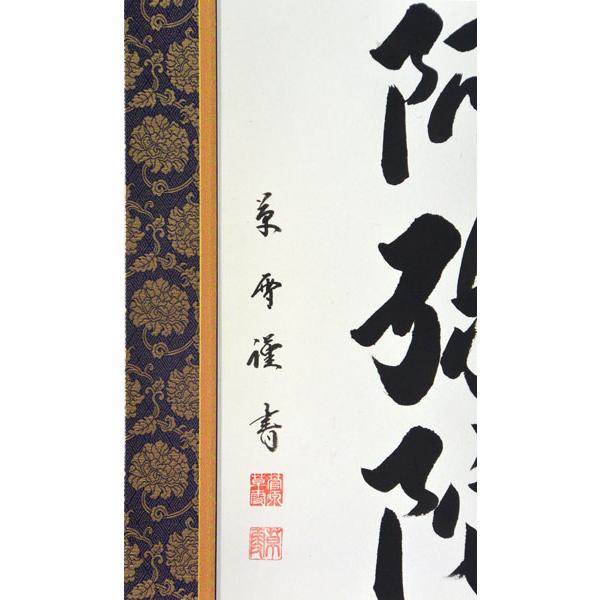 阿弥陀
草雪謹書